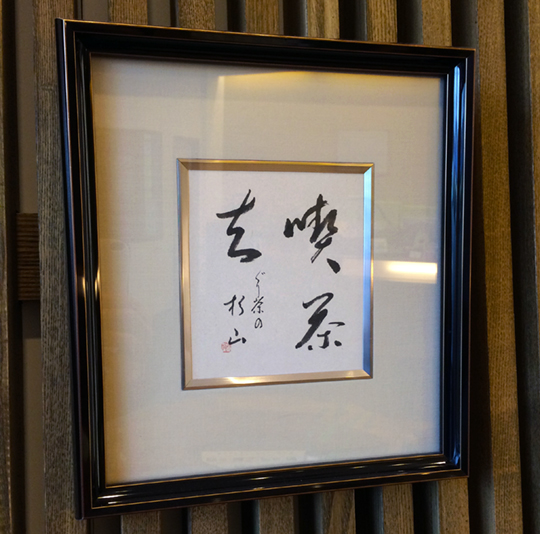 喫茶
去
ぐり茶の
杉山